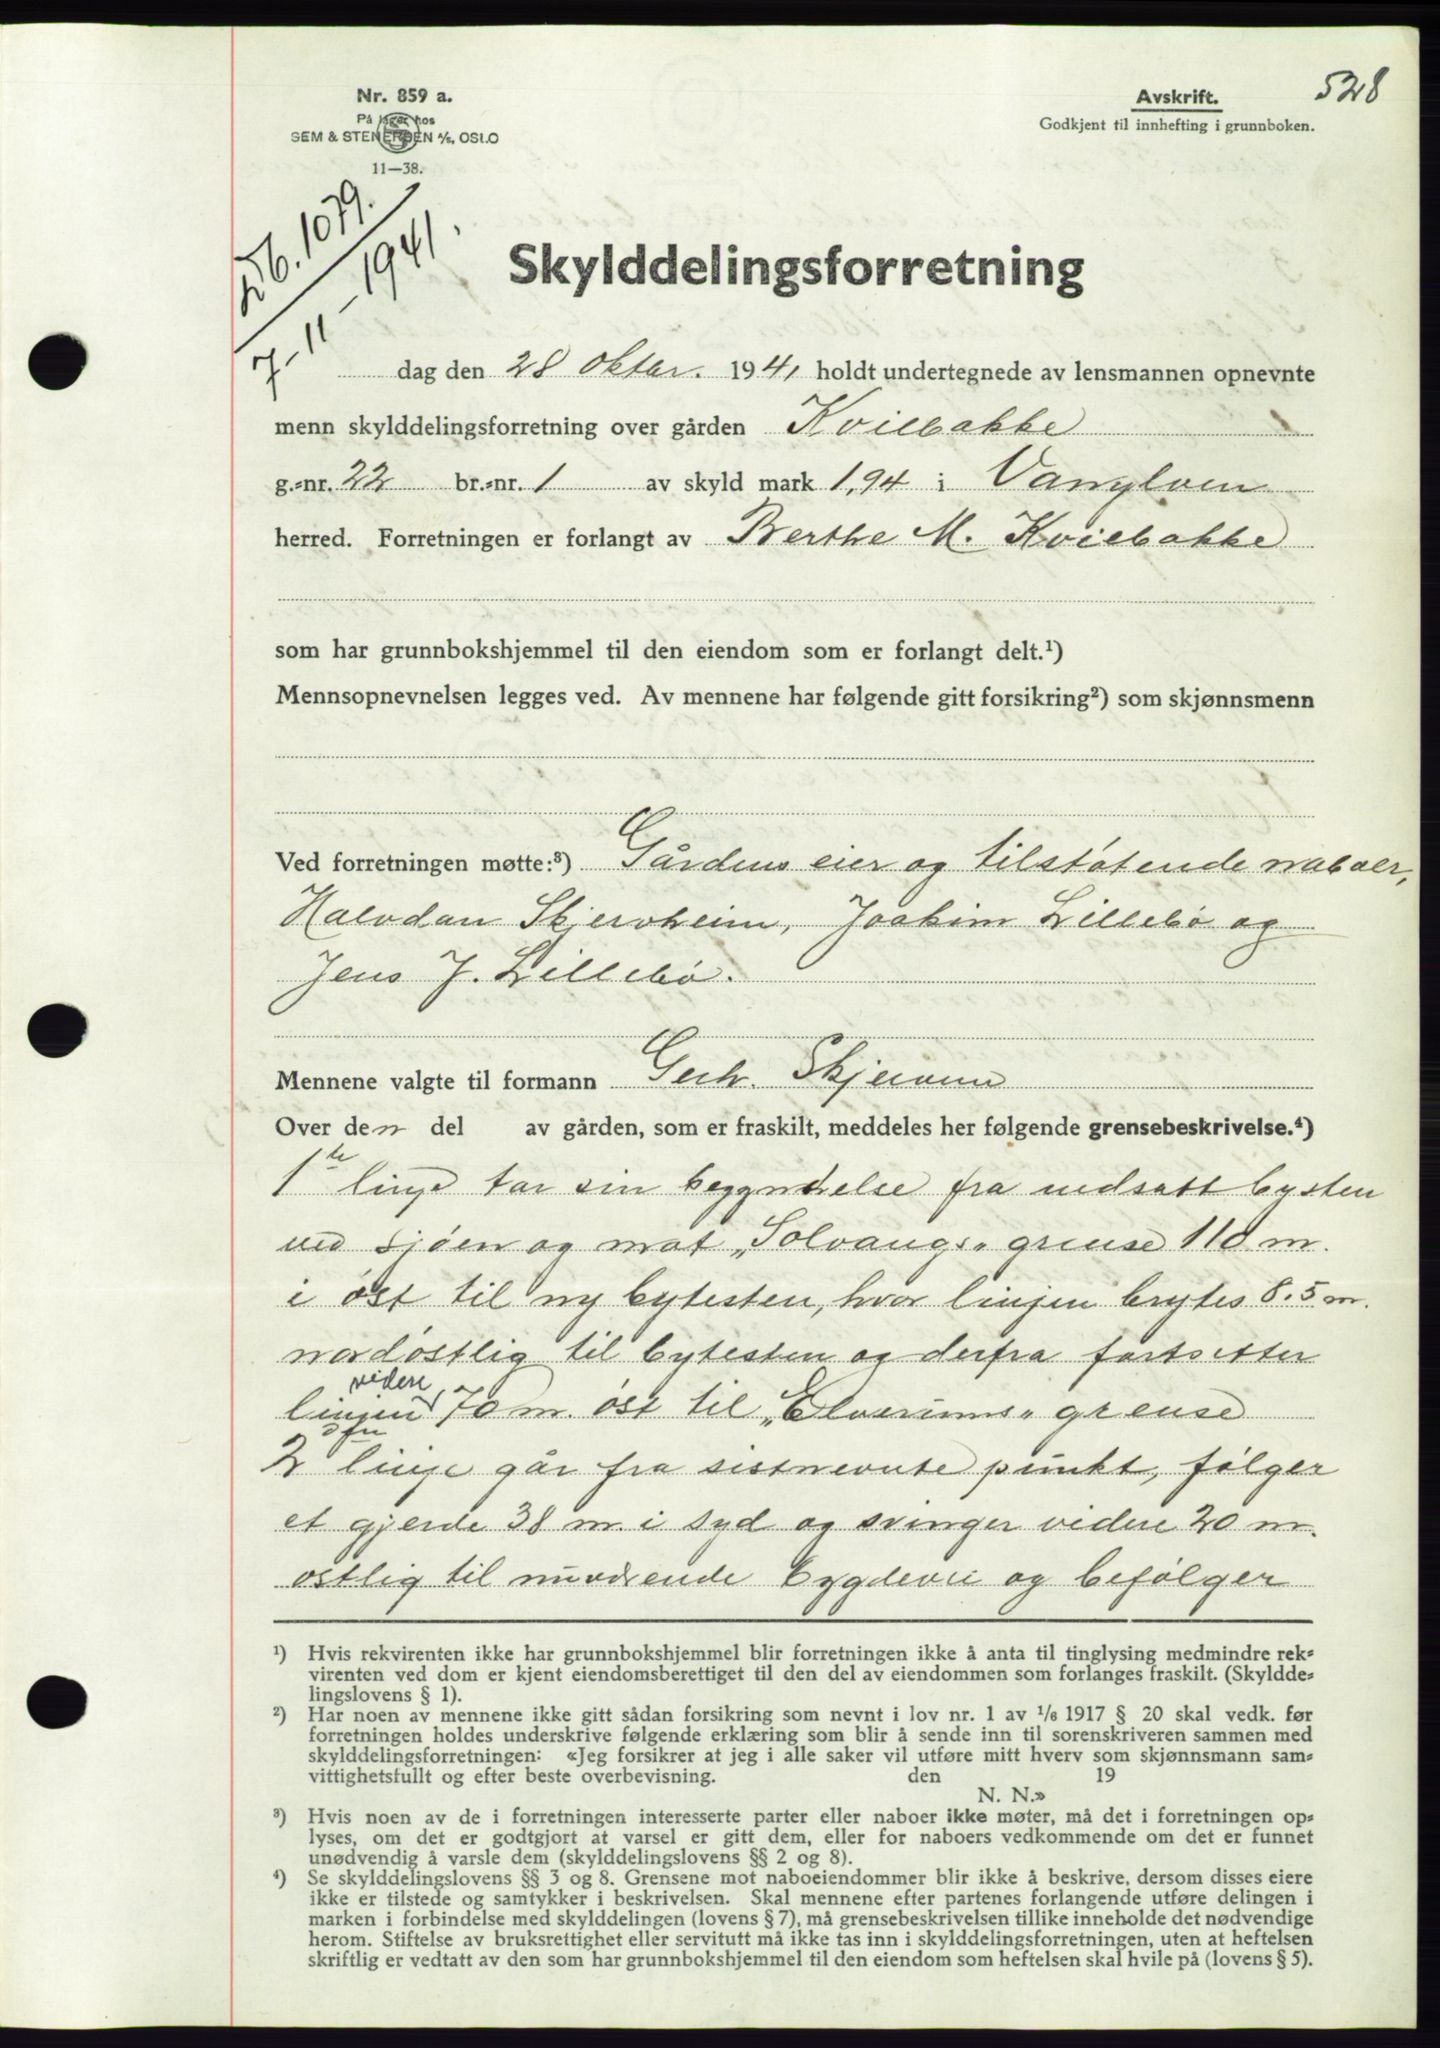 528
Nr. 859 a.
På lager hos
SEM & STENERSEN A/S, OSLO
11—38.
Avskrift.
Godkjent til innhefting i grunnboken.
Db. 1079.
7-11-1941.
Skylddelingsforretning
dag den 28 oktbr. 1941 holdt undertegnede av lensmannen opnevnte
menn skylddelingsforretning over gården Kviebakke
g.-nr. 22 br.-nr. 1 av skyld mark 1,94 i Vanylven
herred. Forretningen er forlangt av Berthe M. Kviebakke
som har grunnbokshjemmel til den eiendom som er forlangt delt.¹)
Mennsopnevnelsen legges ved. Av mennene har følgende gitt forsikring²) som skjønnsmenn
Ved forretningen møtte:³) Gårdens eier og tilstøtende naboer,
Halvdan Skjervheim, Joakim Lillebø og
Jens J. Lillebø.
Mennene valgte til formann Gerh. Skjerven
Over den del av gården, som er fraskilt, meddeles her følgende grensebeskrivelse.⁴)
1te linje tar sin begyndelse fra nedsatt bysten
ved sjøen og mot „Solvangs" grense 110 m.
i øst til ny bytesten, hvor linjen brytes 8.5 m.
nordøstlig til bytesten og derfra fortsetter
videre
linjen 70 m. øst til „Elverums" grense
2 linje går fra sistnevnte punkt, følger
et gjerde 38 m. i syd og svinger videre 20 m.
østlig til nuværende bygdevei og befølger
¹) Hvis rekvirenten ikke har grunnbokshjemmel blir forretningen ikke å anta til tinglysing medmindre rek-
virenten ved dom er kjent eiendomsberettiget til den del av eiendommen som forlanges fraskilt. (Skyldde-
lingslovens § 1).
²) Har noen av mennene ikke gitt sådan forsikring som nevnt i lov nr. 1 av 1/6 1917 § 20 skal vedk. før
forretningen holdes underskrive følgende erklæring som blir å sende inn til sorenskriveren sammen med
skylddelingsforretningen: «Jeg forsikrer at jeg i alle saker vil utføre mitt hverv som skjønnsmann sam-
vittighetsfullt og efter beste overbevisning. den 19
N. N.»
³) Hvis noen av de i forretningen interesserte parter eller naboer ikke møter, må det i forretningen op-
lyses, om det er godtgjort at varsel er gitt dem, eller for naboers vedkommende om det er funnet
unødvendig å varsle dem (skylddelingslovens §§ 2 og 8).
⁴) Se skylddelingslovens §§ 3 og 8. Grensene mot naboeiendommer blir ikke å beskrive, dersom disses eiere
ikke er tilstede og samtykker i beskrivelsen. Skal mennene efter partenes forlangende utføre delingen i
marken i forbindelse med skylddelingen (lovens § 7), må grensebeskrivelsen tillike inneholde det nødvendige
herom. Stiftelse av bruksrettighet eller servitutt må ikke tas inn i skylddelingsforretningen, uten at heftelsen
skriftlig er vedtatt av den som har grunnbokshjemmel til den eiendom som heftelsen skal hvile på (lovens § 5).